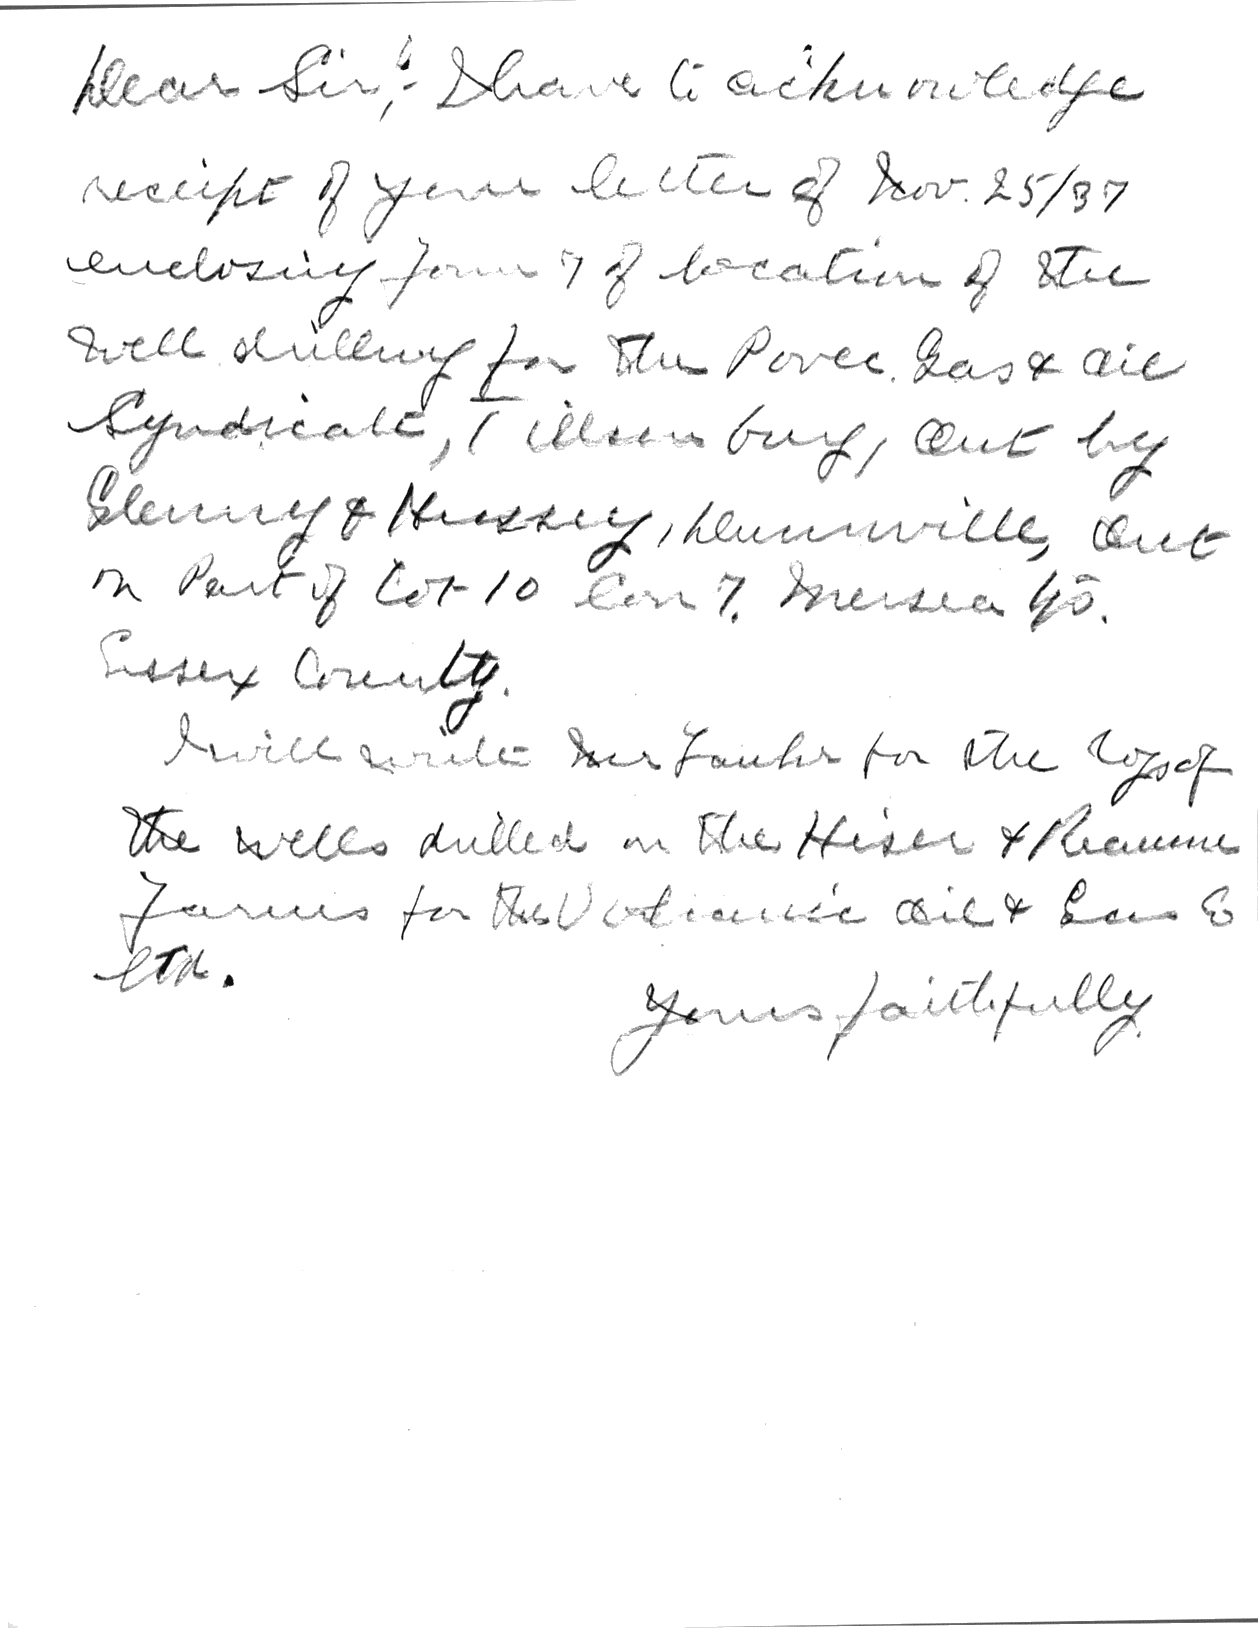 Dear Sir;- I have to acknowledge
receipt of your letter of Nov. 25/37
enclosing form 7 of location of the
well drilling for the Gas & Oil
Syndicate, Tillsonburg, Ont by
Glenny & Hussey, Dunnville, Ont
on Part of Lot 10 Con 7. Mersea
Essex County.
I will write Mr for the logs of
the wells drilled on the Hiser & Reaume
Farms for the Volcanic Oil & Gas Co
Ltd.
Yours faithfully